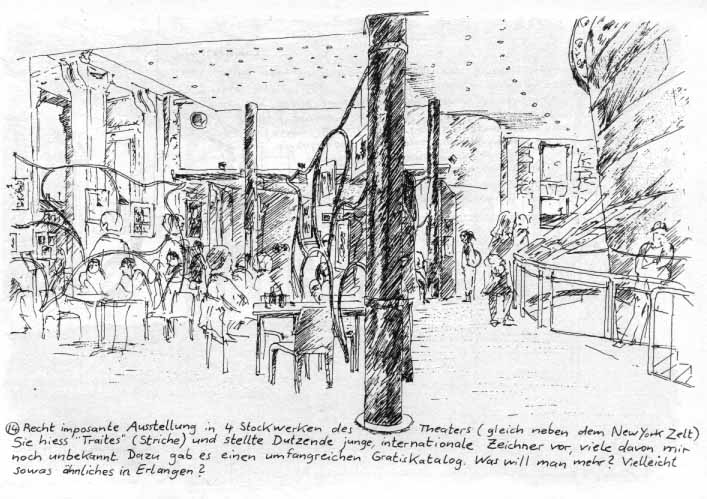 ⑭ Recht imposante Ausstellung in 4 Stockwerken des Theaters (gleich neben dem New York Zelt)
Sie hiess "Traites" (Striche) und stellte Dutzende junge, internationale Zeichner vor, viele davon mir
noch unbekannt. Dazu gab es einen umfangreichen Gratiskatalog. Was will man mehr? Vielleicht
sowas ähnliches in Erlangen?